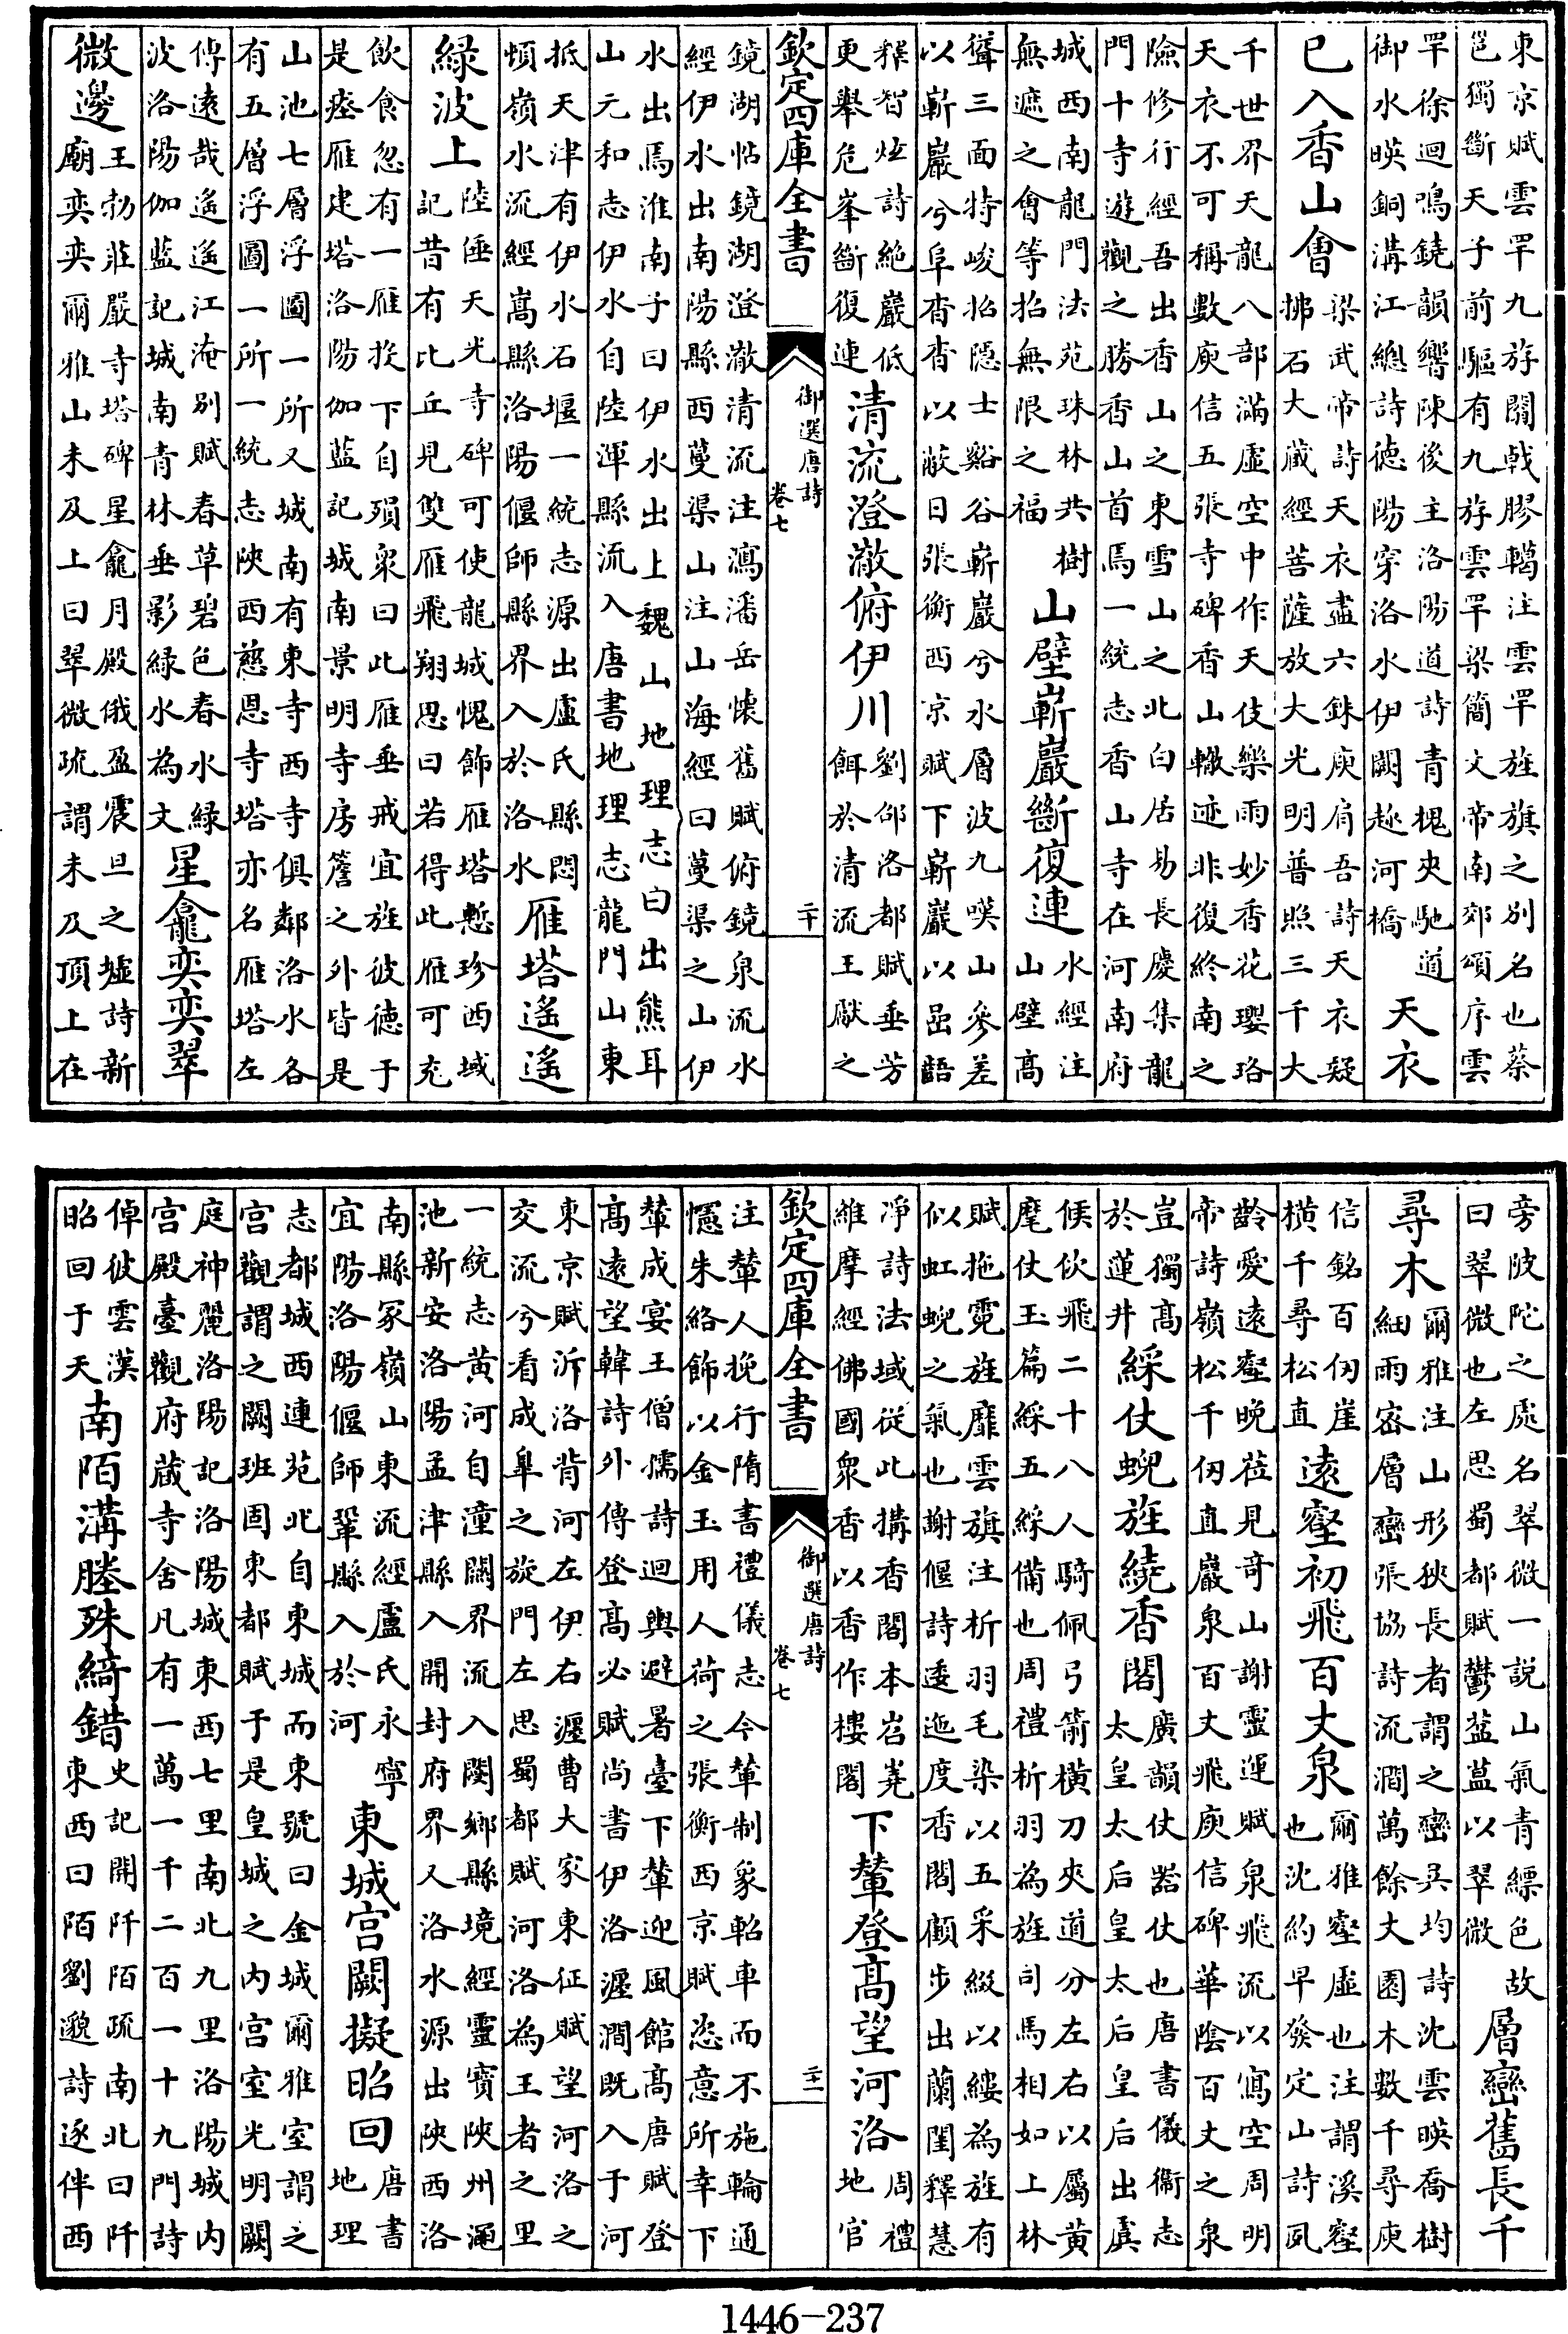 東京賦雲罕九斿闟戟轇轕注雲罕旌旗之別名也蔡
邕獨斷天子前驅有九斿雲罕梁簡文帝南郊頌序雲
罕徐迴鳴鐃韻響陳後主洛陽道詩青槐夾馳道
御水映銅溝江總詩德陽穿洛水伊闕趍河橋
天衣
已入香山會
梁武帝詩天衣盡六銖庾肩吾詩天衣疑
拂石大藏經菩薩放大光明普照三千大
千世界天龍八部滿虛空中作天伎樂雨妙香花瓔珞
天衣不可稱數庾信五張寺碑香山轍迹非復終南之
險修行經吾出香山之東雪山之北白居易長慶集龍
門十寺遊觀之勝香山首馬一統志香山寺在河南府
城西南龍門法苑珠林共樹
無遮之會等招無限之福
山壁嶄巖斷復連
水經注
山壁高
聳三面特峻招隱士谿谷嶄巖兮水層波九嘆山參差
以嶄巖兮阜杳杳以蔽日張衡西京賦下嶄巖以嵒齬
釋智炫詩絶巖低
更舉危峯斷復連
清流澄澈俯伊川
劉邵洛都賦垂芳
餌於清流王獻之
欽定四庫全書
御選唐詩
卷七
二十
鏡湖帖鏡湖澄澈清流注瀉潘岳懷舊賦俯鏡泉流水
經伊水出南陽縣西蔓渠山注山海經曰蔓渠之山伊
水出焉淮南子曰伊水出上魏山地理志曰出熊耳
山元和志伊水自陸渾縣流入唐書地理志龍門山東
抵天津有伊水石堰一統志源出盧氏縣悶
頓嶺水流經嵩縣洛陽偃師縣界入於洛水
雁塔遙遙
綠波上
陸倕天光寺碑可使龍城愧飾雁塔慙珍西域
記昔有比丘見雙雁飛翔思曰若得此雁可充
飲食忽有一雁投下自殞衆曰此雁垂戒宜旌彼德于
是瘞雁建塔洛陽伽藍記城南景明寺房簷之外皆是
山池七層浮圖一所又城南有東寺西寺俱鄰洛水各
有五層浮圖一所一統志陜西慈恩寺塔亦名雁塔左
傳遠哉遙遙江淹別賦春草碧色春水綠
波洛陽伽藍記城南青林垂影綠水為文
星龕奕奕翠
微邊
王勃莊嚴寺塔碑星龕月殿俄盈震旦之墟詩新
廟奕奕爾雅山未及上曰翠微疏謂未及頂上在
旁陂陀之處名翠微一說山氣青縹色故
曰翠微也左思蜀都賦鬱葐蒕以翠微
層巒舊長千
尋木
爾雅注山形狹長者謂之巒吳均詩沈雲映喬樹
細雨密層巒張協詩流澗萬餘丈圍木數千尋庾
信銘百仞崖
橫千尋松直
遠壑初飛百丈泉
爾雅壑虛也注謂溪壑
也沈約早發定山詩夙
齡愛遠壑晚莅見奇山謝靈運賦泉飛流以寫空周明
帝詩嶺松千仞直巖泉百丈飛庾信碑華陰百丈之泉
豈獨高
於蓮井
綵仗蜺旌繞香閣
廣韻仗器仗也唐書儀衞志
太皇太后皇太后皇后出虞
候佽飛二十八人騎佩弓箭橫刀夾道分左右以屬黃
麾仗玉篇綵五綵備也周禮析羽為旌司馬相如上林
賦拖霓旌靡雲旗注析羽毛染以五采綴以縷為旌有
似虹蜺之氣也謝偃詩逶迤度香閣顧步出蘭閨釋慧
淨詩法域從此構香閣本岧嶤
維摩經佛國衆香以香作樓閣
下輦登高望河洛
周禮
地官
欽定四庫全書
御選唐詩
卷七
二十一
注輦人挽行隋書禮儀志今輦制象軺車而不施輪通
幰朱絡飾以金玉用人荷之張衡西京賦恣意所幸下
輦成宴王僧孺詩迴輿避暑臺下輦迎風館高唐賦登
高遠望韓詩外傳登高必賦尚書伊洛瀍澗既入于河
東京賦泝洛背河左伊右瀍曹大家東征賦望河洛之
交流兮看成臯之旋門左思蜀都賦河洛為王者之里
一統志黃河自潼關界流入閿鄉縣境經靈寶陜州澠
池新安洛陽孟津縣入開封府界又洛水源出陜西洛
南縣冢嶺山東流經盧氏永寧
宜陽洛陽偃師鞏縣入於河
東城宮闕擬昭回
唐書
地理
志都城西連苑北自東城而東號曰金城爾雅室謂之
宮觀謂之闕班固東都賦于是皇城之內宮室光明闕
庭神麗洛陽記洛陽城東西七里南北九里洛陽城內
宮殿臺觀府藏寺舍凡有一萬一千二百一十九門詩
倬彼雲漢
昭回于天
南陌溝塍殊綺錯
史記開阡陌疏南北曰阡
東西曰陌劉邈詩逐伴西
1446-237